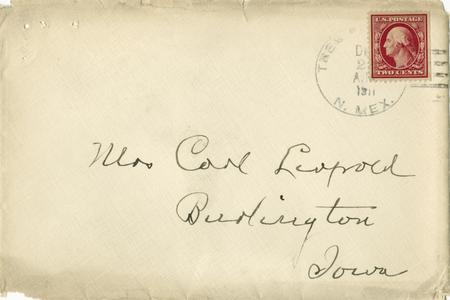 U.S. POSTAGE
TWO CENTS
TRES
A.M.
1911
N. MEX.
Mrs Carl Leopold
Burlington
Iowa